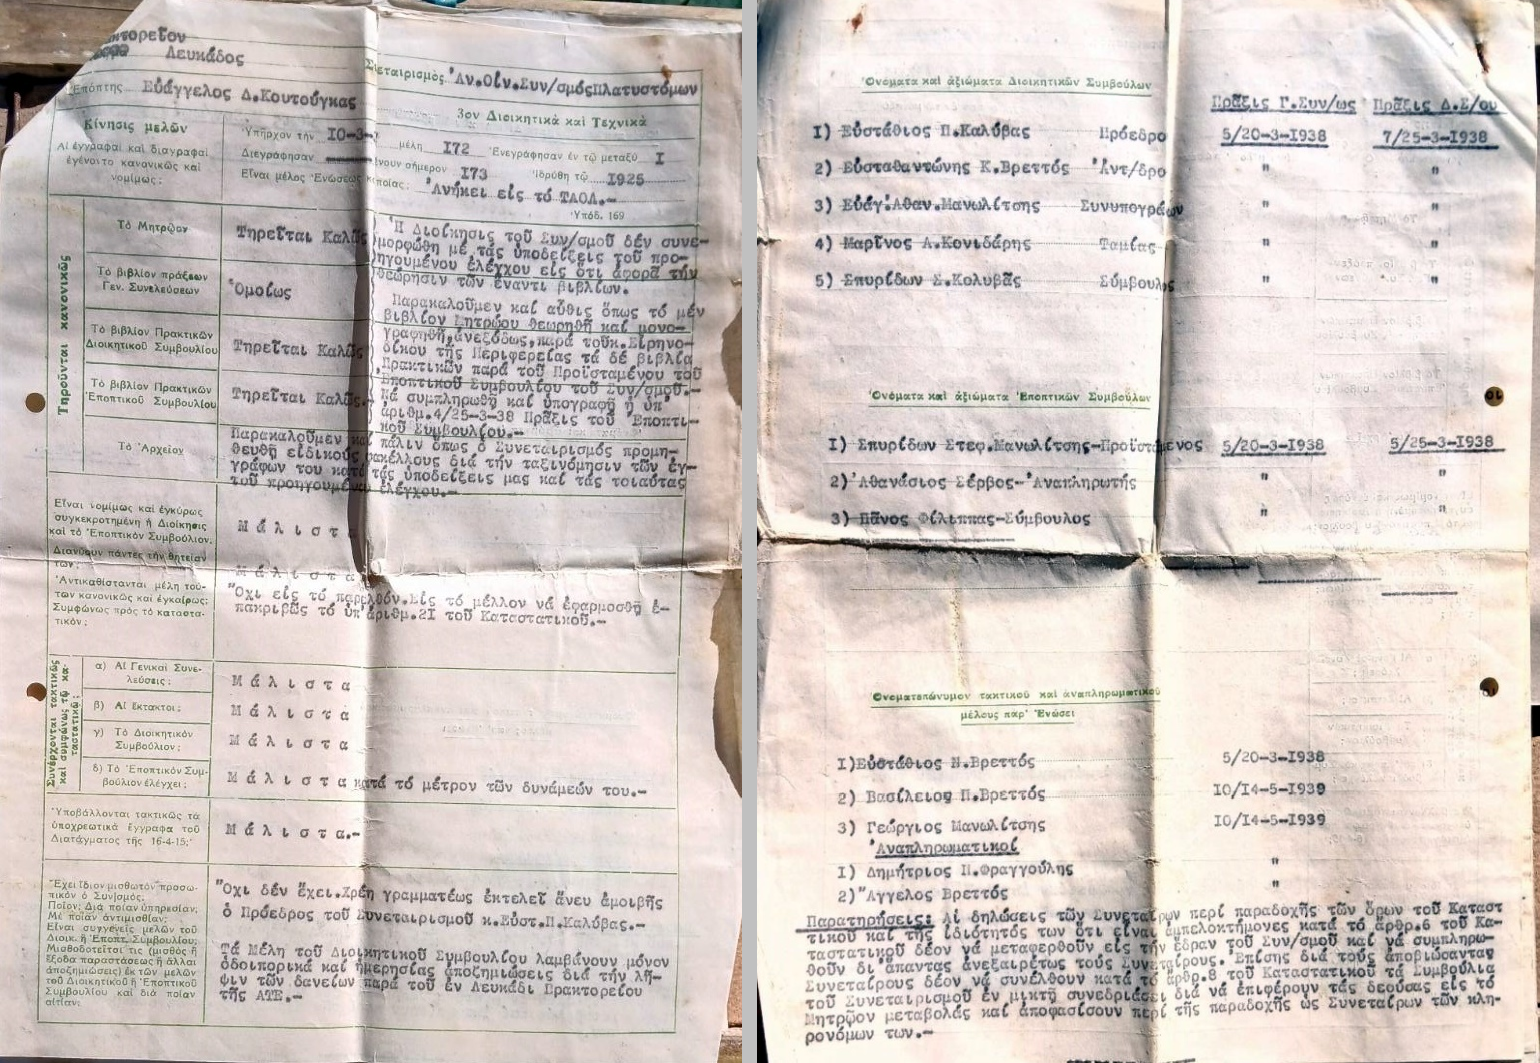 κτορεῖον
Λευκάδος
Ἐπόπτης Εὐάγγελος Δ.Κουτούγκας
Συεταιρισμὸς Ἀν.Οἰν.Συν/σμόςΠλατυστόμων
3ον Διοικητικὰ καὶ Τεχνικὰ
Κίνησις μελῶν
Αἱ ἐγγραφαὶ καὶ διαγραφαὶ
ἐγένοντο κανονικῶς καὶ
νομίμως;
Ὑπῆρχον τὴν Ι0-3-
μέλη Ι72 Ἐνεγράφησαν ἐν τῷ μεταξὺ Ι
Διεγράφησαν
νουν σήμερον Ι73 Ἱδρύθη τῷ Ι925
Εἶναι μέλος Ἑνώσεως καὶ ποίας; Ἀνήκει εἰς τό ΤΑΟΛ.-
Ὑπόδ. 169
Τηροῦνται κανονικῶς
Τὸ Μητρῷον
Τηρεῖται Καλῶς
Τὸ βιβλίον πράξεων
Γεν. Συνελεύσεων
Ὁμοίως
Τὸ βιβλίον Πρακτικῶν
Διοικητικοῦ Συμβουλίου
Τηρεῖται Καλῶς
Τὸ βιβλίον Πρακτικῶν
Ἐποπτικοῦ Συμβουλίου
Τηρεῖται Καλῶς.-
Ἡ Διοίκησις τοῦ Συν/σμοῦ δέν συνε-
μορφώθη μέ τάς ὑποδείξεις τοῦ προ-
ηγουμένου ἐλέγχου εἰς ὅτι ἀφορᾶ τήν
θεώρησιν τῶν ἔναντι βιβλίων.
Παρακαλοῦμεν καί αὖθις ὅπως τό μέν
βιβλίον Μητρώου θεωρηθῆ καί μονο-
γραφηθῆ,ἀνεξόδως,παρά τοῦκ.Εἰρηνο-
δίκου τῆς Περιφερείας τά δέ βιβλία
Πρακτικῶν παρά τοῦ Προϊσταμένου τοῦ
Ἐποπτικοῦ Συμβουλίου τοῦ Συν/σμοῦ.-
Νά συμπληρωθῆ καί ὑπογραφῆ ἡ ὑπ'
ἀριθμ.4/25-3-38 Πρᾶξις τοῦ Ἐποπτι-
κοῦ Συμβουλίου.-
Τὸ Ἀρχεῖον
Παρακαλοῦμεν καί πάλιν ὅπως ὁ Συνεταιρισμός προμη-
θευθῆ εἰδικούς φακέλλους διά τήν ταξινόμησιν τῶν ἐγ-
γράφων του κατά τάς ὑποδείξεις μας καί τάς τοιαύτας
τοῦ προηγουμένου ἐλέγχου.-
Εἶναι νομίμως καὶ ἐγκύρως
συγκεκροτημένη ἡ Διοίκησις
καὶ τὸ Ἐποπτικὸν Συμβούλιον.
Μ ά λ ι σ τ α
Διανύουν πάντες τὴν θητείαν
των;
Μ ά λ ι σ τ α
Ἀντικαθίστανται μέλη τού-
των κανονικῶς καὶ ἐγκαίρως;
Συμφώνως πρὸς τὸ καταστα-
τικόν;
Ὄχι εἰς τό παρελθόν.Εἰς τό μέλλον νά ἐφαρμοσθῆ ἐ-
πακριβῶς τό ὑπ'ἀριθμ.2Ι τοῦ Καταστατικοῦ.-
Συνέρχονται τακτικῶς
καὶ συμφώνως τῷ κα-
ταστατικῷ;
α) Αἱ Γενικαὶ Συνε-
λεύσεις;
Μ ά λ ι σ τ α
β) Αἱ ἔκτακτοι;
Μ ά λ ι σ τ α
γ) Τὸ Διοικητικὸν
Συμβούλιον;
Μ ά λ ι σ τ α
δ) Τὸ Ἐποπτικὸν Συμ-
βούλιον ἐλέγχει;
Μ ά λ ι σ τ α κατά τό μέτρον τῶν δυνάμεών του.-
Ὑποβάλλονται τακτικῶς τὰ
ὑποχρεωτικὰ ἔγγραφα τοῦ
Διατάγματος τῆς 16-4-15;
Μ ά λ ι σ τ α.-
Ἔχει ἴδιον μισθωτὸν προσω-
πικὸν ὁ Συν)σμός;
Ποῖον; Διὰ ποίαν ὑπηρεσίαν;
Μὲ ποίαν ἀντιμισθίαν;
Εἶναι συγγενεῖς μελῶν τοῦ
Διοικ. ἢ Ἐποπτ. Συμβουλίου;
Μισθοδοτεῖταί τις (μισθὸς ἢ
ἔξοδα παραστάσεως ἢ ἄλλαι
ἀποζημιώσεις) ἐκ τῶν μελῶν
τοῦ Διοικητικοῦ ἢ Ἐποπτικοῦ
Συμβουλίου καὶ διὰ ποίαν
αἰτίαν;
Ὄχι δέν ἔχει.Χρέη γραμματέως ἐκτελεῖ ἄνευ ἀμοιβῆς
ὁ Πρόεδρος τοῦ Συνεταιρισμοῦ κ.Εὐστ.Π.Καλύβας.-
Τά Μέλη τοῦ Διοικητικοῦ Συμβουλίου λαμβάνουν μόνον
ὁδοιπορικά καί ἡμερησίας ἀποζημιώσεις διά τήν λῆ-
ψιν τῶν δανείων παρά τοῦ ἐν Λευκάδι Πρακτορείου
τῆς ΑΤΕ.-
Ὀνόματα καὶ ἀξιώματα Διοικητικῶν Συμβούλων
Πρᾶξις Γ.Συν/ως Πρᾶξις Δ.Σ/ου
Ι) Εὐστάθιος Π.Καλύβας Πρόεδρο 5/20-3-Ι938 7/25-3-Ι938
2) Εὐσταθαντώνης Κ.Βρεττός Ἀντ/δρο " "
3) Εὐάγ.Ἀθαν.Μανωλίτσης Συνυπογράφων " "
4) Μαρῖνος Α.Κονιδάρης Ταμίας " "
5) Σπυρίδων Σ.Κολυβᾶς Σύμβουλος " "
Ὀνόματα καὶ ἀξιώματα Ἐποπτικῶν Συμβούλων
Ι) Σπυρίδων Στεφ.Μανωλίτσης-Προϊστάμενος 5/20-3-Ι938 5/25-3-Ι938
2) Ἀθανάσιος Σέρβος-Ἀναπληρωτής " "
3) Πᾶνος Φίλιππας-Σύμβουλος " "
Ὀνοματεπώνυμον τακτικοῦ καὶ ἀναπληρωματικοῦ
μέλους παρ' Ἑνώσει
Ι)Εὐστάθιος Ν.Βρεττός 5/20-3-Ι938
2) Βασίλειος Π.Βρεττός Ι0/Ι4-5-Ι939
3) Γεώργιος Μανωλίτσης Ι0/Ι4-5-Ι939
Ἀναπληρωματικοί
Ι) Δημήτριος Π.Φραγγούλης "
2) Ἄγγελος Βρεττός "
Παρατηρήσεις: Αἱ δηλώσεις τῶν Συνεταίρων περί παραδοχῆς τῶν ὅρων τοῦ Καταστ
τικοῦ καί τῆς ἰδιότητός των ὅτι εἶναι ἀμπελοκτήμονες κατά τό ἄρθρ.6 τοῦ Κα-
ταστατικοῦ δέον νά μεταφερθοῦν εἰς τήν ἕδραν τοῦ Συν/σμοῦ καί νά συμπληρω-
θοῦν δι'ἅπαντας ἀνεξαιρέτως τούς Συνεταίρους.Ἐπίσης διά τούς ἀποβιώσαντας
Συνεταίρους δέον νά συνέλθουν κατά τό ἄρθρ.8 τοῦ Καταστατικοῦ τά Συμβούλια
τοῦ Συνεταιρισμοῦ ἐν μικτῇ συνεδριάσει διά νά ἐπιφέρουν τάς δεούσας εἰς τό
Μητρῷον μεταβολάς καί ἀποφασίσουν περί τῆς παραδοχῆς ὡς Συνεταίρων τῶν κλη-
ρονόμων των.-